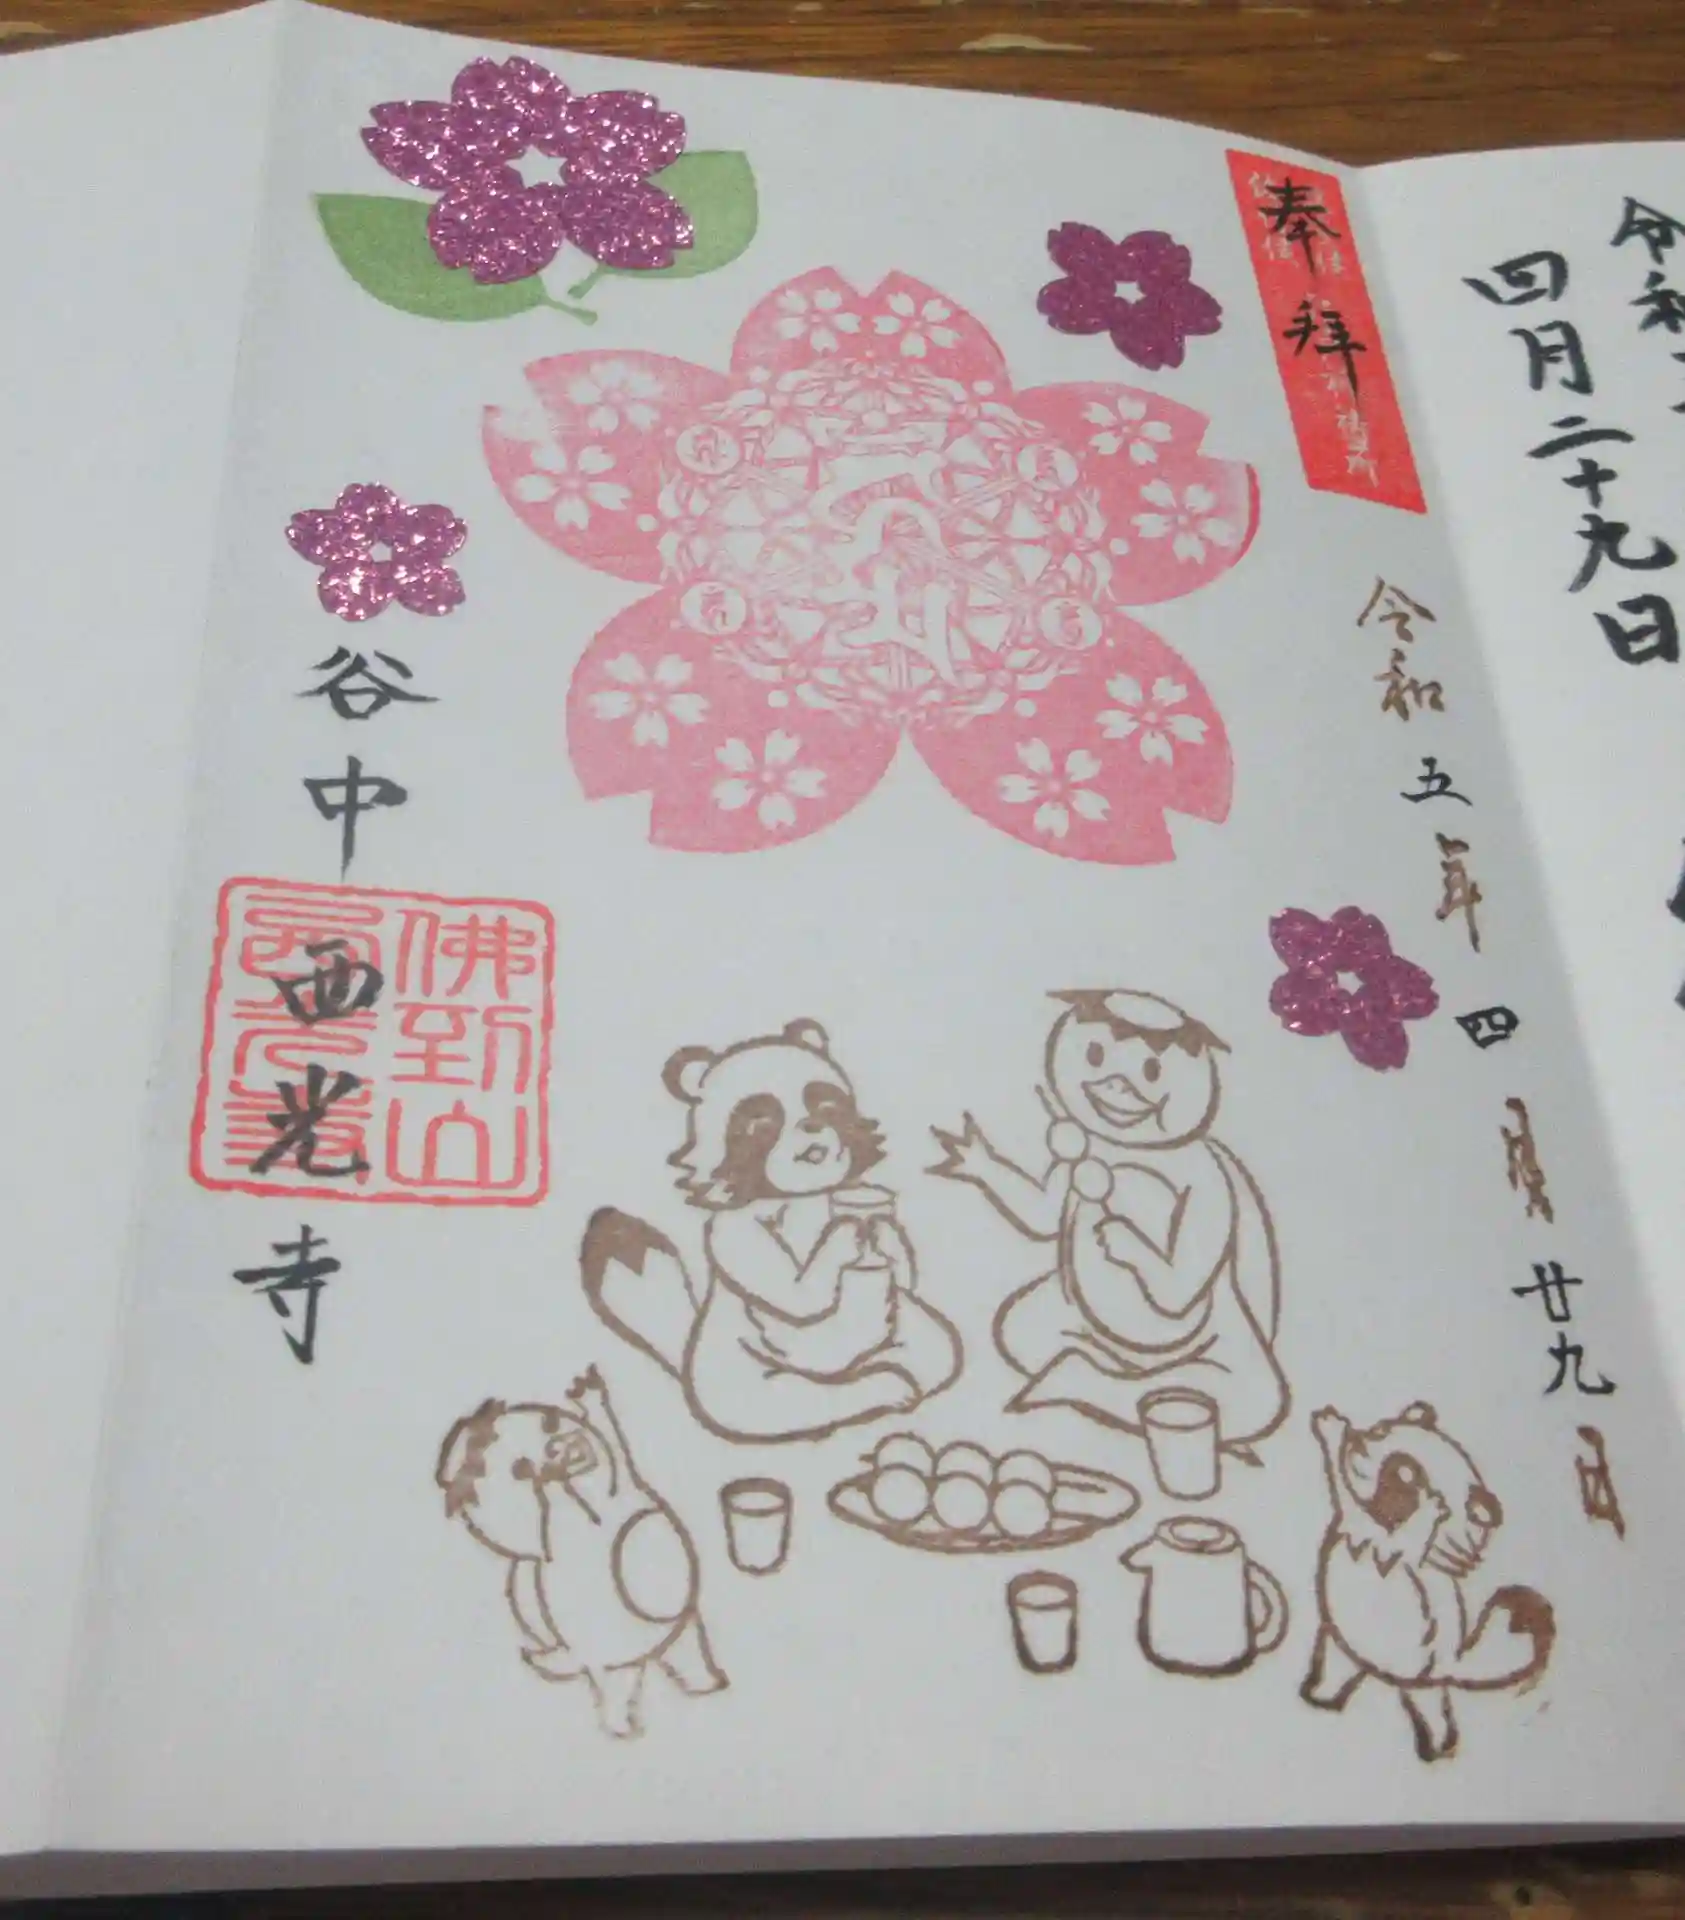 令和
四月二十九日
奉拝
令和五年四月廿九日
谷中
西光寺
佛到山
西光寺